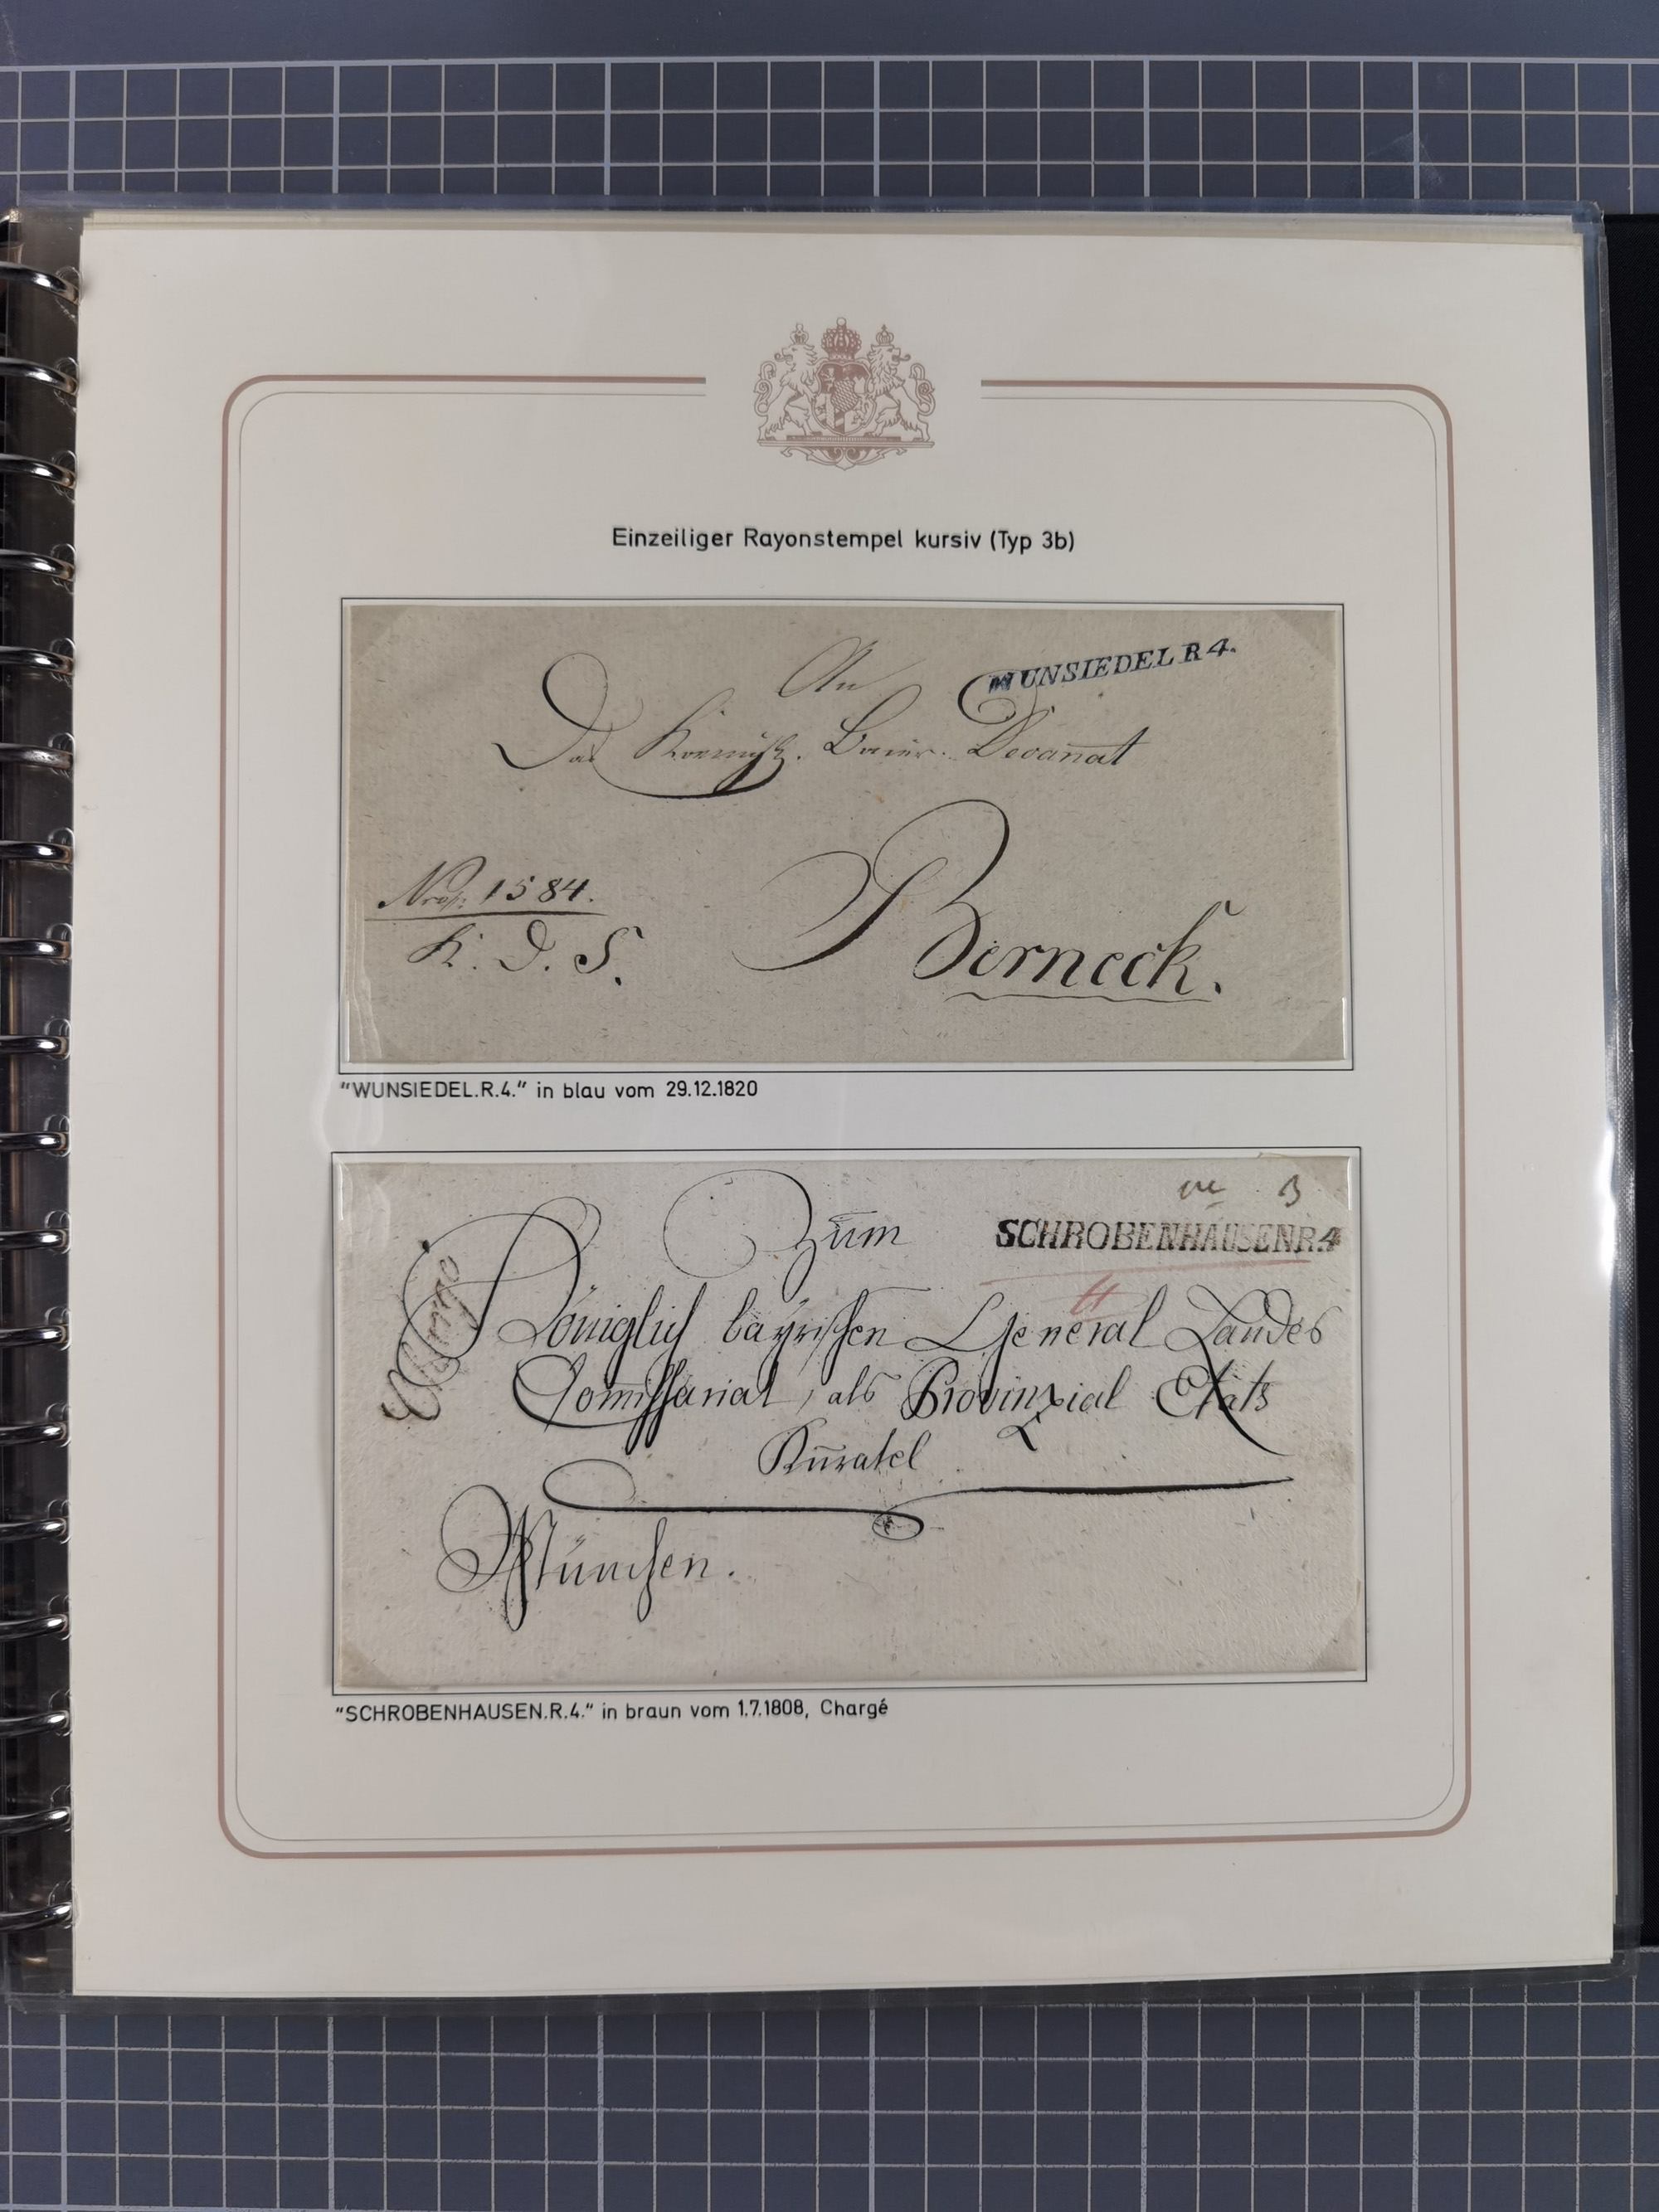 Einzeiliger Rayonstempel kursiv (Typ 3b)
WUNSIEDEL R 4.
An
Das Koenigl. Baier. Decanat
Nro. 1584.
K. D. S.
Berneck.
"WUNSIEDEL.R.4." in blau vom 29.12.1820
Zum
SCHROBENHAUSEN R.4
Königlich bayrischen General Landes
Comissariat, als Provinzial Etats
Kuratel
München.
"SCHROBENHAUSEN.R.4." in braun vom 1.7.1808, Chargé